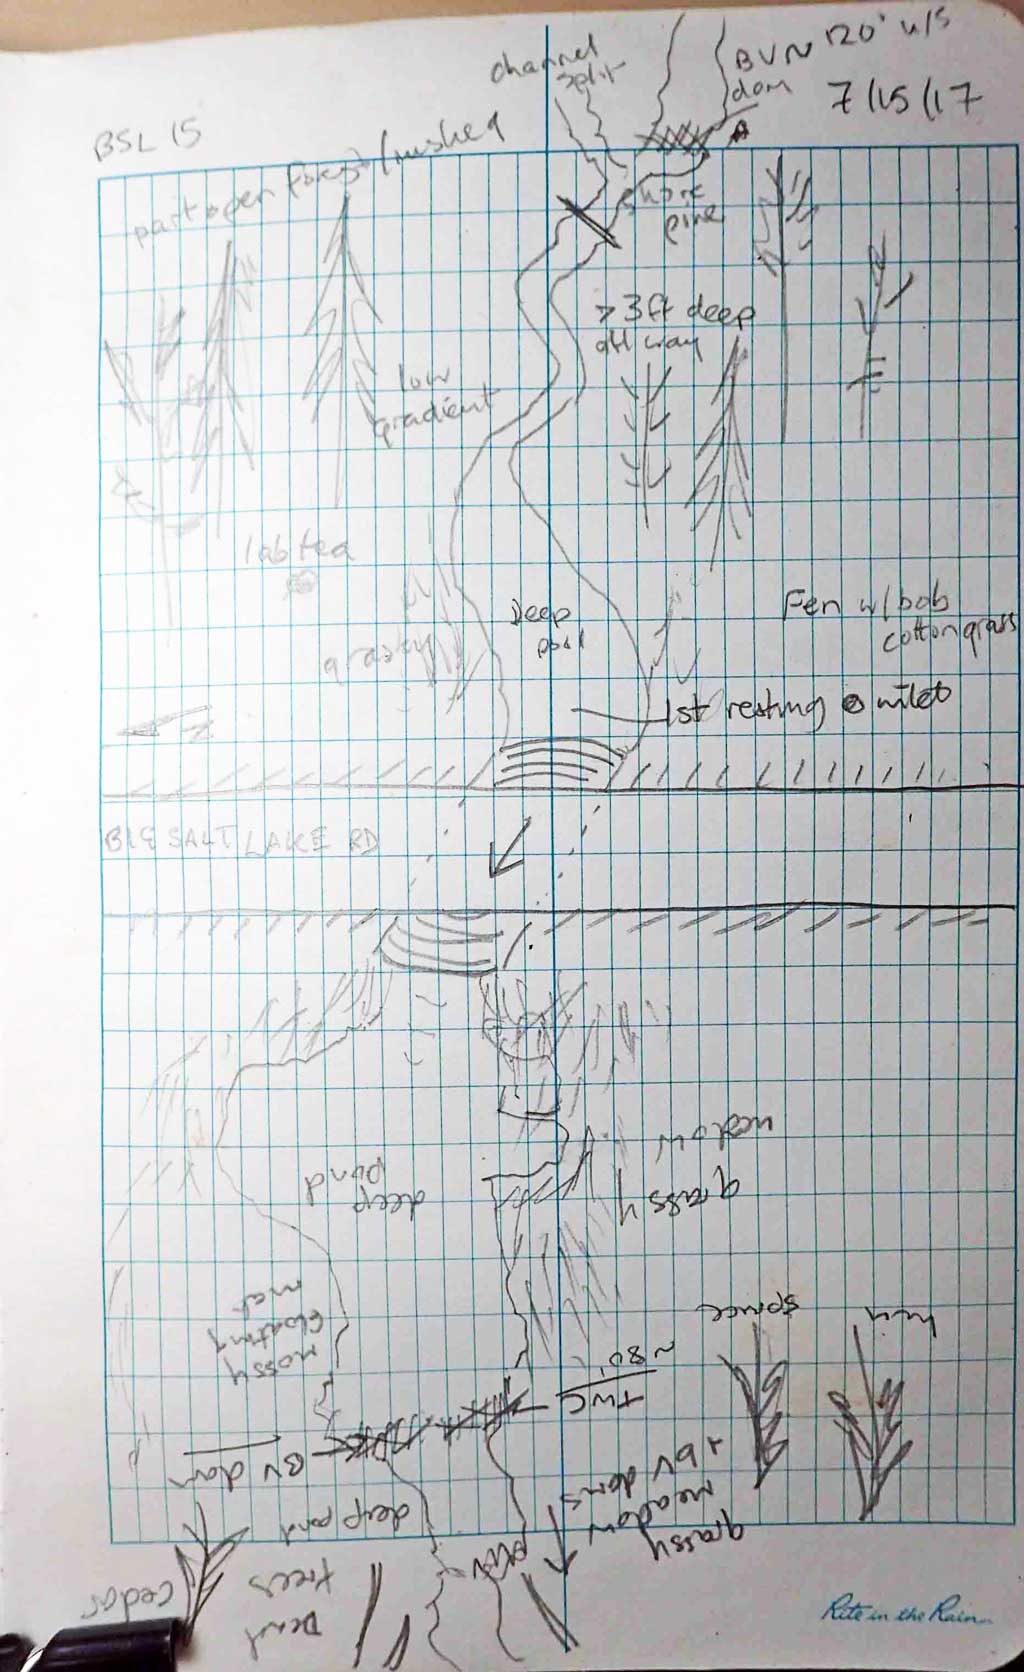 channel
split
BVR 120' u/s
dam
7/15/17
BSL 15
part open forest/
shore
pine
>3ft deep
all way
low
gradient
lab tea
Deep
pool
Fen w/bob
cottongrass
1st resting @ inlet
BIG SALT LAKE RD
deep
pond
grassy
meadow
mossy
floating
mat
spruce
TWC
~80'
BV dam
deep pond
grassy
meadow
+ BV dams
cedar
Dead
trees
Rite in the Rain